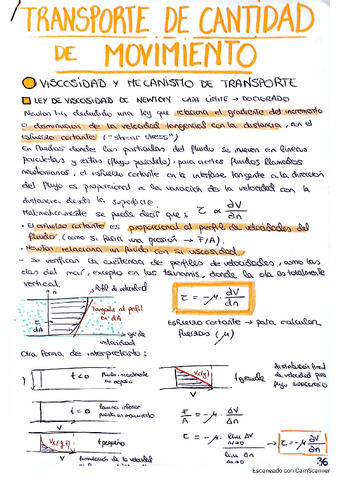 TRANSPORTE DE CANTIDAD
DE MOVIMIENTO
VISCOSIDAD Y MECANISMO DE TRANSPORTE
LEY DE VISCOSIDAD DE NEWTON CAPA LÍMITE →
Newton ha deducido una ley que relaciona el gradiente del incremento
o disminución de la velocidad tangencial con la distancia, con el
esfuerzo cortante ("shear stress")
En fluidos donde las partículas del fluido se mueven en líneas
paralelas y rectas (flujo paralelo), para ciertos fluidos llamados
newtonianos, el esfuerzo cortante en la interfase tangente a la dirección
del flujo es proporcional a la variación de la velocidad con la
distancia desde la superficie.
Matemáticamente se puede decir que: τ ∝ ∂V/∂n
• El esfuerzo cortante es proporcional al perfil de velocidades del
fluido. (como si fuera una presión → F/A).
• Newton relaciona un fluido con su viscosidad.
- Se verifican la existencia de perfiles de velocidades, como las
olas del mar, excepto en los tsunamis, donde la ola es totalmente
vertical.
Perfil de velocidad
τ = -μ · ∂V/∂n
Tangente al perfil
en dA
τ
dA
eje de
velocidad
Esfuerzo cortante → para calcular
fuerzas (μ)
Otra forma de interpretarlo:
t<0
fluido inicialmente
en reposo
Vx(y)
t grande
distribución final
de velocidad para
flujo estacionario
t=0
lámina inferior
puesta en movimiento
F/A = -μ · ΔV/Δn
Vx(y,t)
t pequeño
Formación de la velocidad
τ = -μ · lim ΔV / lim Δn → τ = -μ ∂V/∂n
36
Escaneado con CamScanner